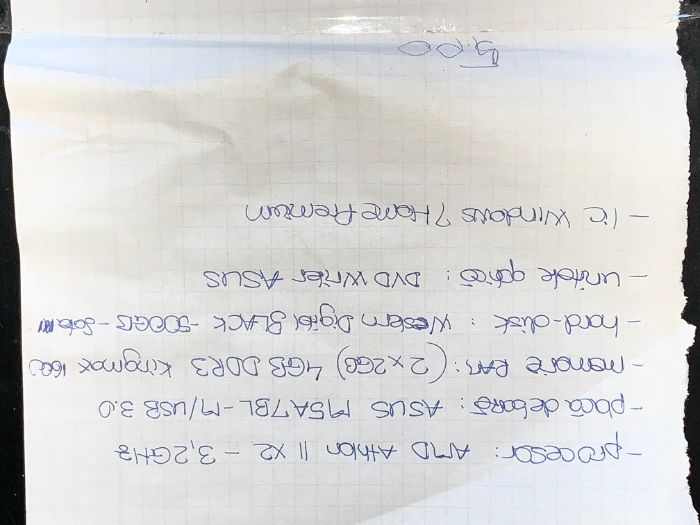 - procesor: AMD Athlon II X2 - 3,2GHz
- placă de bază: ASUS M5A78L-M/USB 3.0
- memorie RAM: (2x2GB) 4GB DDR3 Kingmax 1600
- hard-disk: Western Digital BLACK - 500GB -
- unitate optică: DVD Writer ASUS
- lic Windows 7 Home Premium